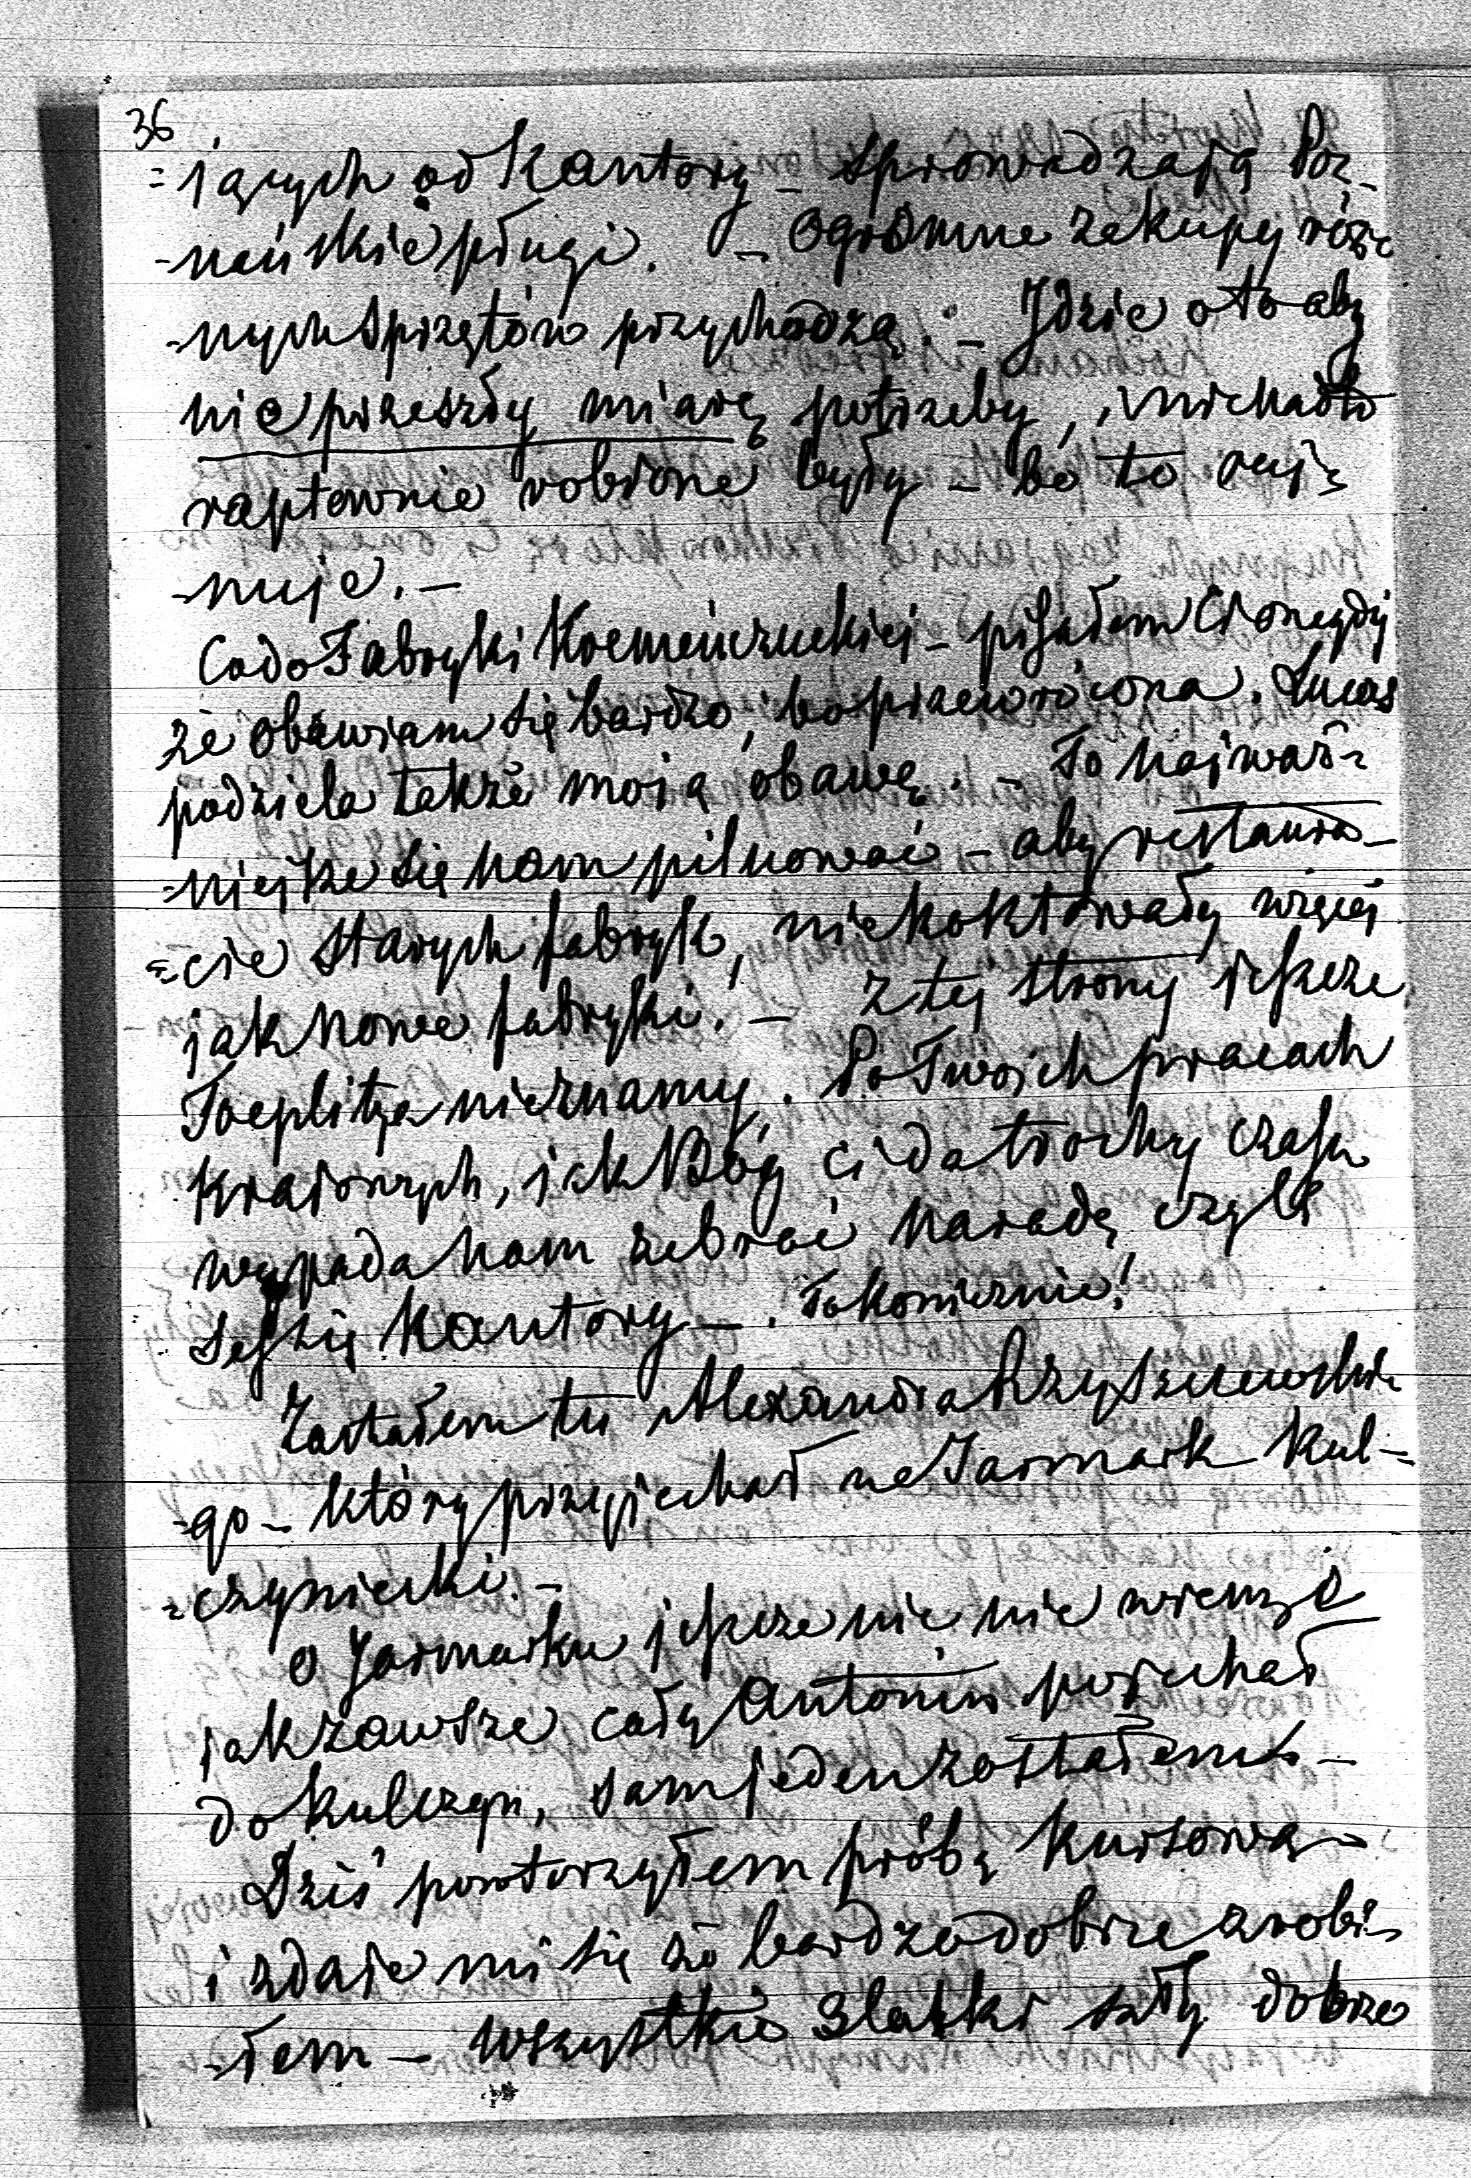 36
=jących od Kantory – sprowadzają Poz-
-nańskie pługi. – Ogromne zakupy róż-
-nych sprzętów przychodzą. – Idzie o to aby
nie przeszły miarę potrzeby, i niechadto
raptownie robione były – bo to ruj-
-nuje. –
Co do Fabryki Kremeńczuckiej – pisałem Ci onegdy
że obawiam się bardzo, bo przewrócona. Lucas
podziela także moją obawę. – To najważ-
-niejsze się nam pilnować – aby restaura-
=cie starych fabryk, nie kosztowały więcej
jak nowe fabryki. – Z tej strony jeszcze
Toeplitza nieznamy. Po Twoich pracach
krajowych, jak Bóg ci da trochę czasu
wypada nam zebrać naradę czyli
sessię Kantory – . To koniecznie!
Zastałem tu Alexandra Rzyszczewskie-
-go – który przyjechał na Jarmark Kul-
=czyniecki. –
O Jarmarku jeszcze nic nie wiem, ż
jak zawsze cały Antonin pojechał
do Kulczyn, sam jeden zostałem –
Dziś powtorzyłem próbę kursową –
i zdaie mi się że bardzo dobrze zrobi-
-łem – wszystkie szły dobrze